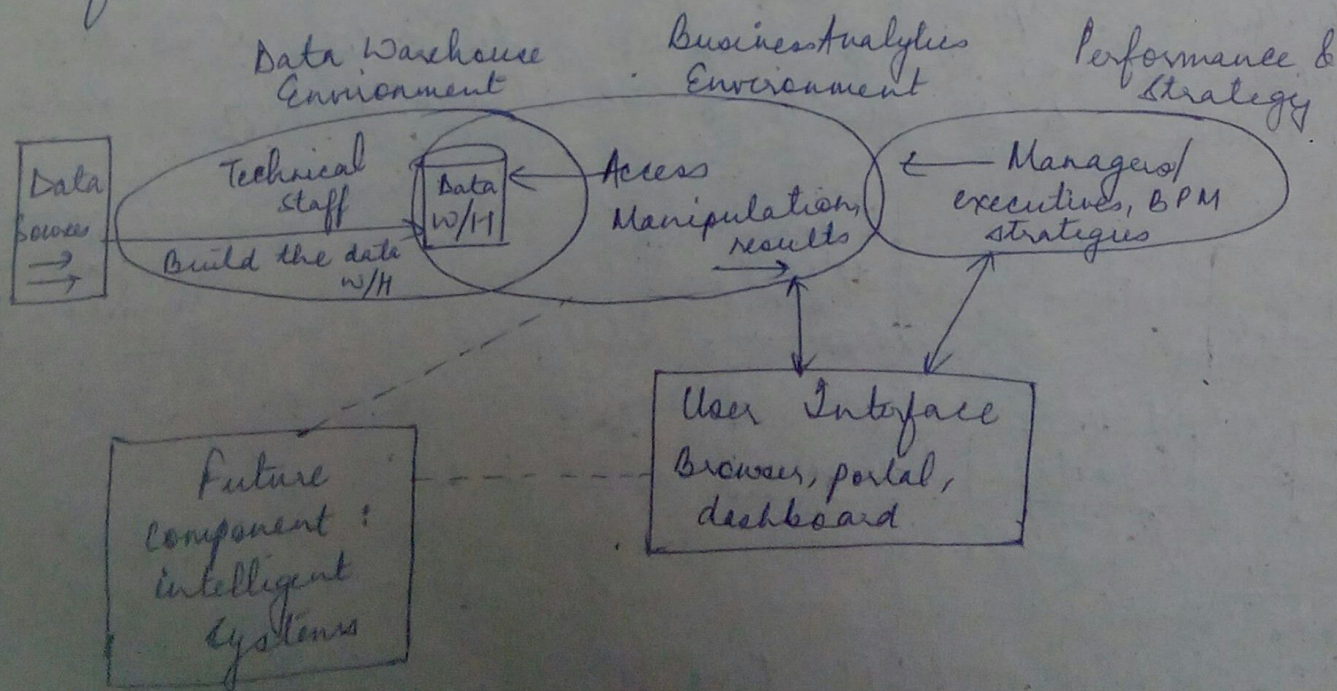 Data Warehouse
Environment
Business Analytics
Environment
Performance &
Strategy
Data
Sources
Technical
staff
Build the data
W/H
Data
W/H
Access
Manipulation,
results
Managers/
executives, BPM
strategies
User Interface
Browser, portal,
dashboard
Future
component :
intelligent
systems